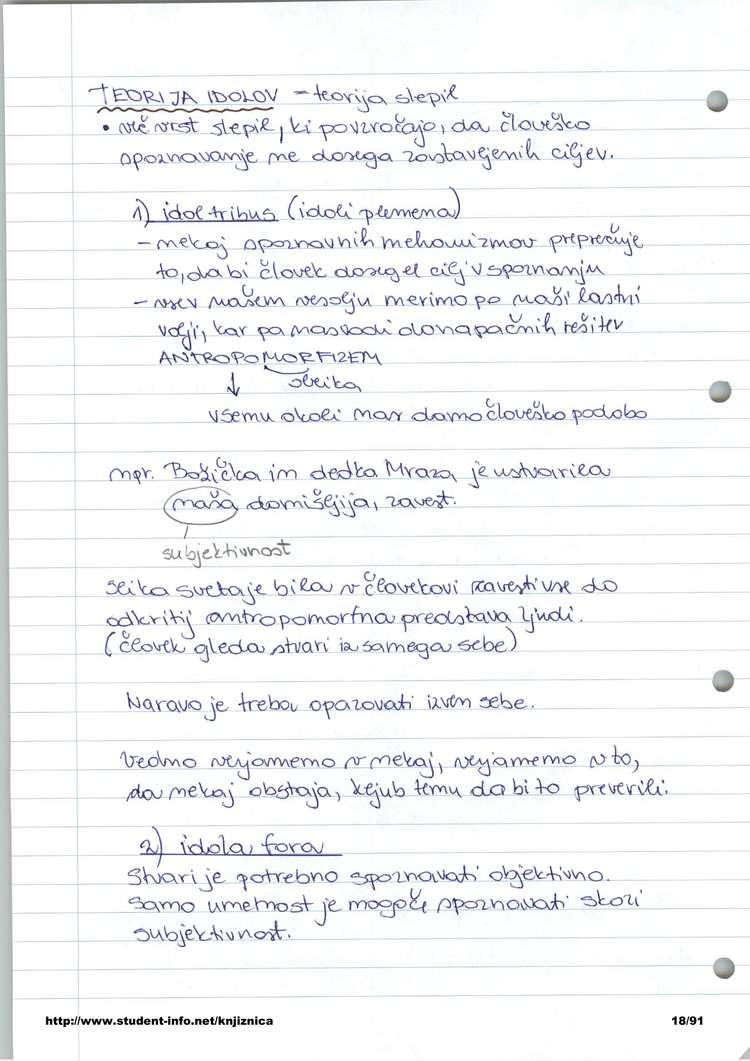 TEORIJA IDOLOV – teorija slepil
• več vrst slepil, ki povzročajo, da človeško
spoznavanje ne dosega zastavljenih ciljev.
1) idol tribus (idoli plemena)
– nekaj spoznavnih mehanizmov preprečuje
to, da bi človek dosegel cilj v spoznanju
– vse v našem vesolju merimo po naši lastni
volji, kar pa nas vodi do napačnih rešitev
ANTROPOMORFIZEM
↓ oblika
vsemu okoli nas damo človeško podobo
npr. Božička in dedka Mraza je ustvarila
naša domišljija, zavest.
subjektivnost
slika sveta je bila v človekovi zavesti vse do
odkritij antropomorfna predstava ljudi.
(človek gleda stvari iz samega sebe)
Naravo je treba opazovati izven sebe.
Vedno verjamemo v nekaj, verjamemo v to,
da nekaj obstaja, kljub temu da bi to preverili.
2) idola fora
Stvari je potrebno spoznavati objektivno.
Samo umetnost je mogoče spoznavati skozi
subjektivnost.
http://www.student-info.net/knjiznica
18/91